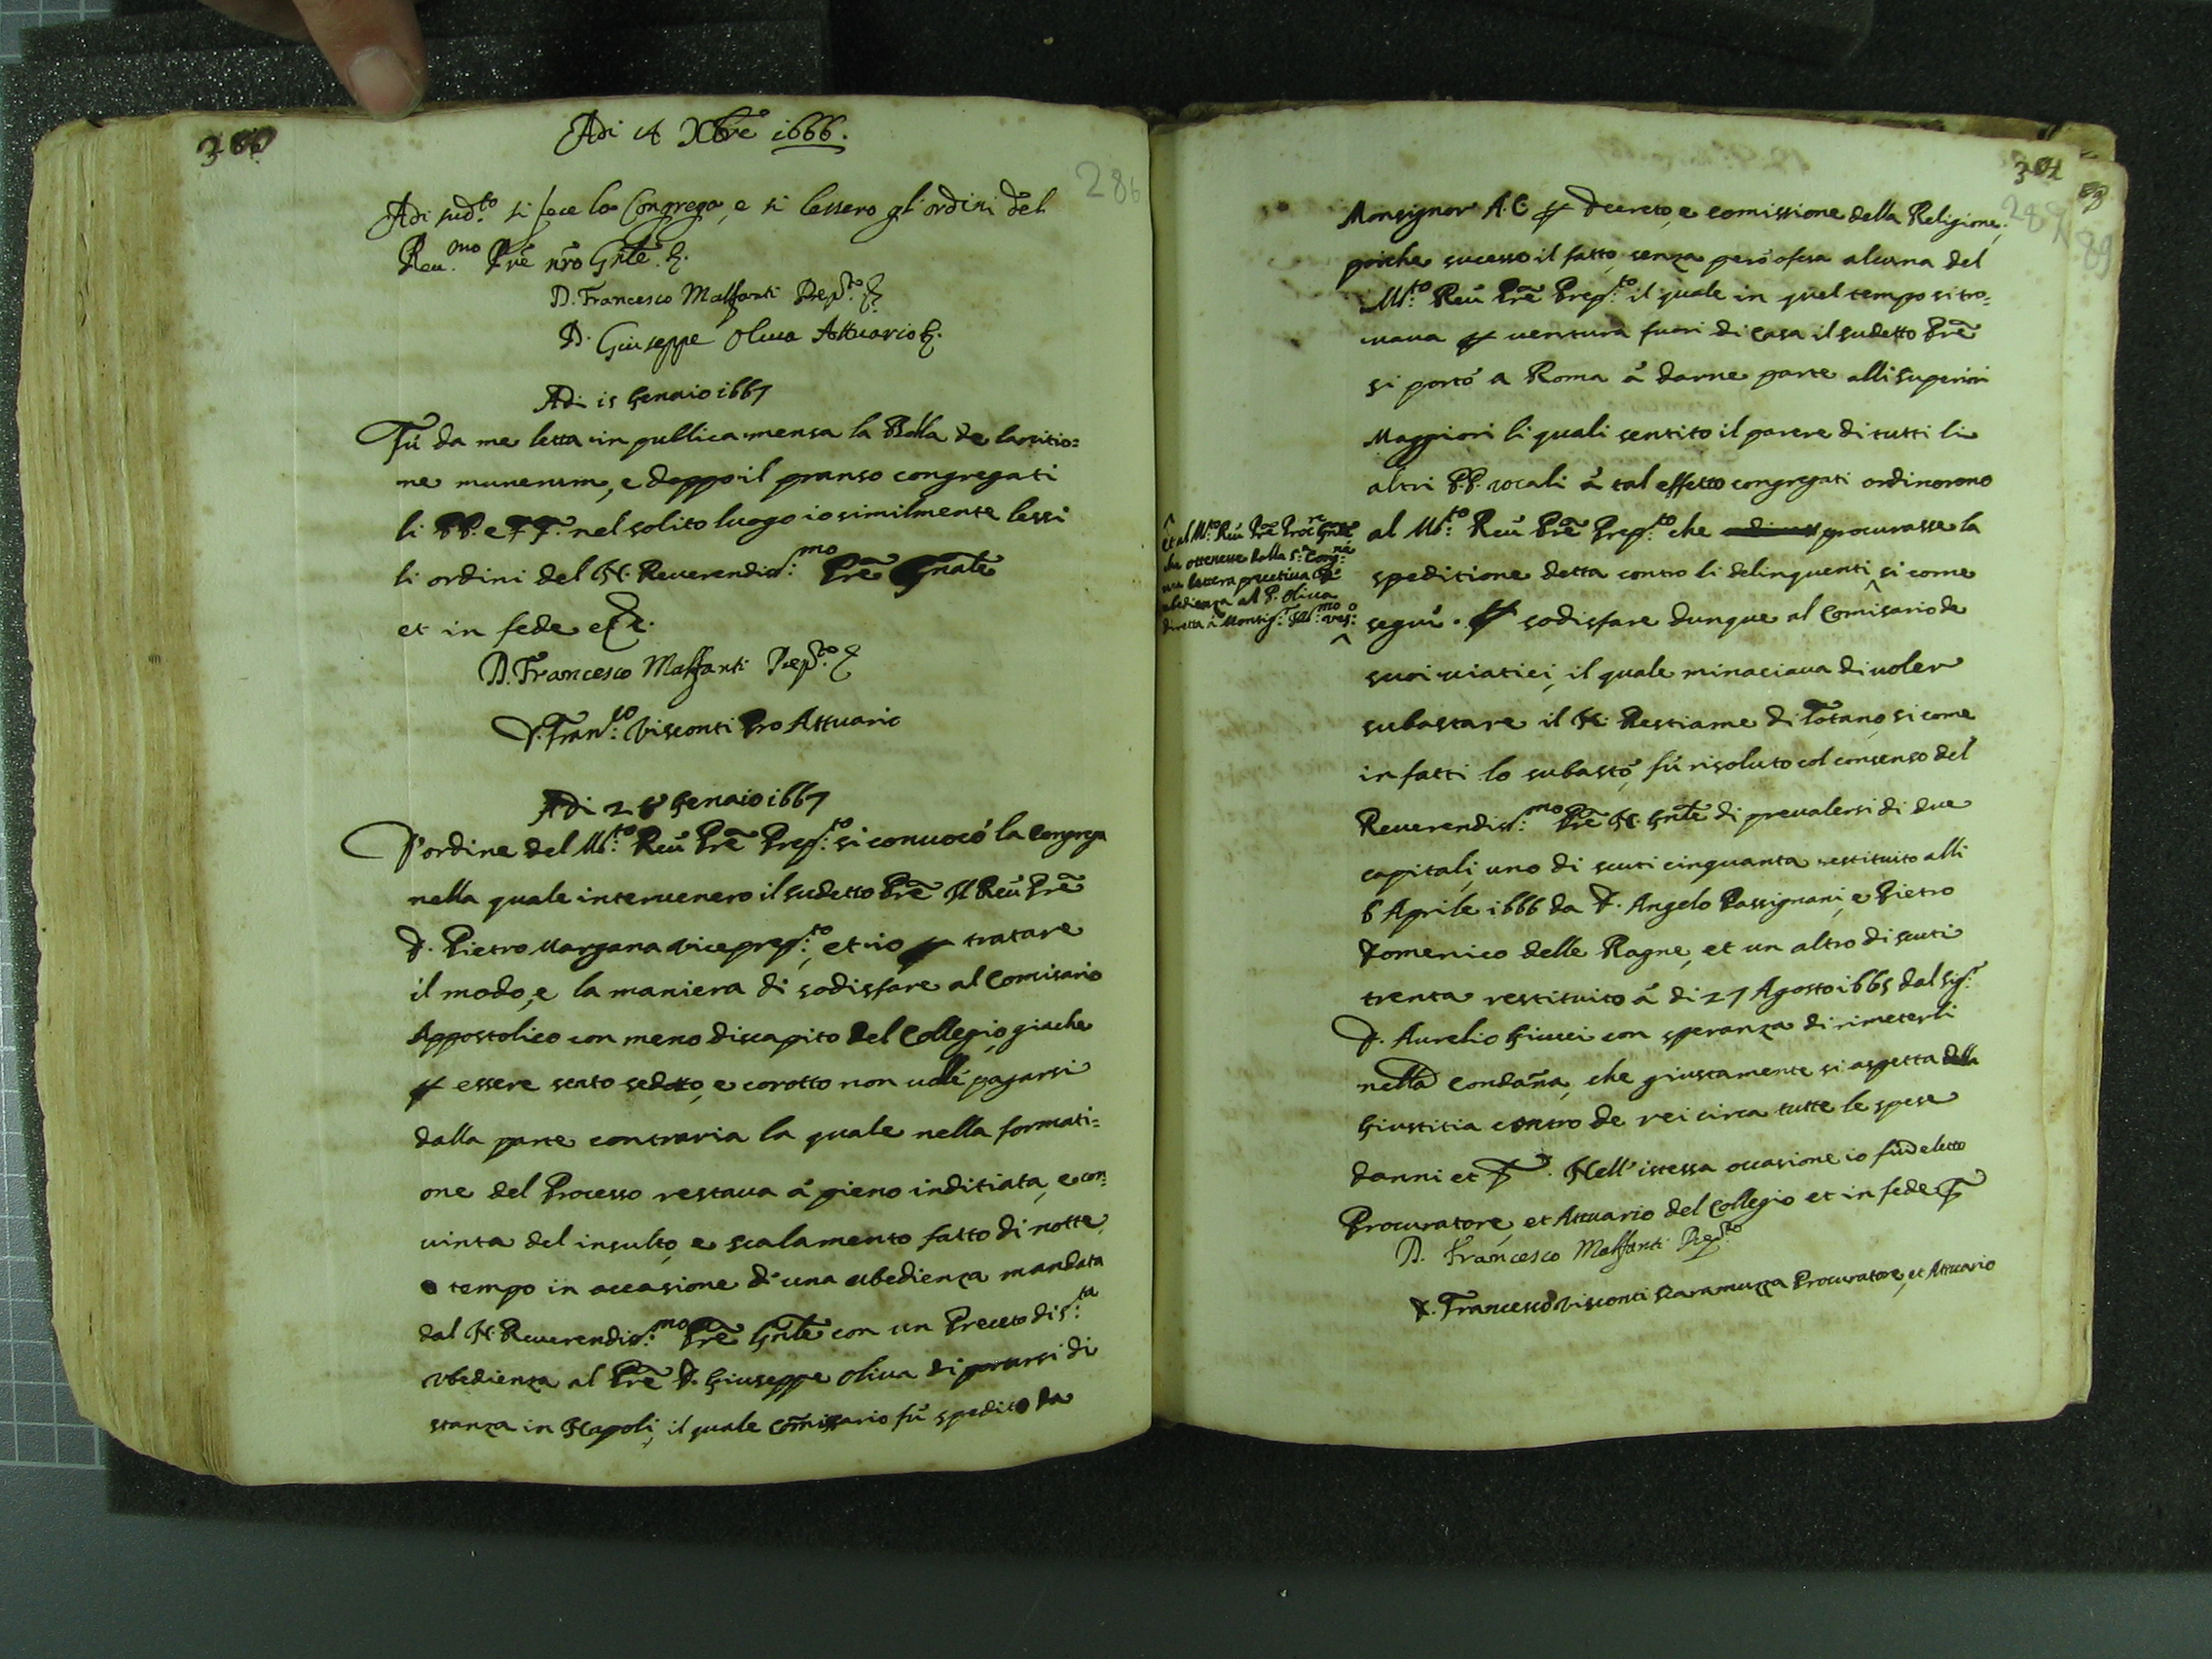 286
Adi 14 Xbre 1666.
Adi sud.to si fece la Congrega, e si lessero gl'ordini del
Reu.mo Prē nr̄o Gn̄le. &.
D. Francesco Malfanti Prep.to &
D. Giuseppe Oliua Attuario &.
Adi 15 Genaio 1667
Fù da me letta in publica mensa la Bolla de largitio=
ne munerum, e doppo il pranso congregati
li PP. e FF. nel solito luogo io similmente lessi
li ordini del N. Reverendis:mo Prē Gn̄ale
et in fede &c.
D. Francesco Malfanti Prep.to &
D. Fran:co Visconti Pro Attuario
Adi 28 Genaio 1667
P ordine del M:to Reū Prē Prep:to si conuocò la Congrega
nella quale interuenero il sudetto Prē Il Reū Prē
D. Pietro Margana Viceprep:to, et io p tratare
il modo, e la maniera di sodisfare al Comisario
Appostolico con meno discapito del Collegio, giache
p essere stato sedotto, e corotto non uolle pagarsi
dalla parte contraria la quale nella formati=
one del Processo restaua à pieno inditiata, e con=
uinta del insulto, e scalamento fatto di notte
tempo in occasione d'una ubedienza mandata
dal N. Reuerendis:mo Prē Gn̄le con un Preceto di S:ta
Vbedienza al Prē D. Giuseppe Oliua di portarsi di
stanza in Napoli, il quale Com̄issario fù spedito da
301
287
89
Monsignor A.C. p decreto, e comissione della Religione;
poiche sucesso il fatto, senza però ofesa alcuna del
M:to Reū Prē Prep:to il quale in quel tempo si tro=
uaua p uentura fuori di casa il sudetto Prē
si portò a Roma à darne parte alli Superiori
Maggiori li quali sentito il parere di tutti li
altri P.P. vocali à tal effetto congregati ordinorono
al M:to Reū Prē Prep:to che procurasse la
speditione detta contro li delinquenti ^ si come
^ et al M:to Reū Prē Proc:re Gn̄le
che ottenesse dalla S:a Cong:ne
una lettera precetiua
ubedienza al P. Oliua
diretta à Monsig:r Ill:mo Ves:o ^
seguì. P sodisfare dunque al Comisario de
suoi uiatici, il quale minaciaua di uoler
subastare il N. Bestiame di Totano, si come
in fatti lo subastò, fù risoluto col consenso del
Reuerendis:mo Prē N. Gn̄le di preualersi di due
capitali, uno di scuti cinquanta restituito alli
6 Aprile 1666 da D. Angelo Passignani, e Pietro
Domenico delle Ragne, et un altro di scuti
trenta restituito à di 27 Agosto 1665 dal Sig:r
D. Aurelio Giucci con speranza di rimeterli
nella Condan̄a, che giustamente si aspetta dalla
Giustitia contro de rei circa tutte le spese
danni et. Nell'istessa occasione io fui eletto
Procuratore, et Attuario del Collegio et in fede
D. Francesco Malfanti Prep.to
D. Francesco Visconti Scaramuzza Procuratore, et Attuario